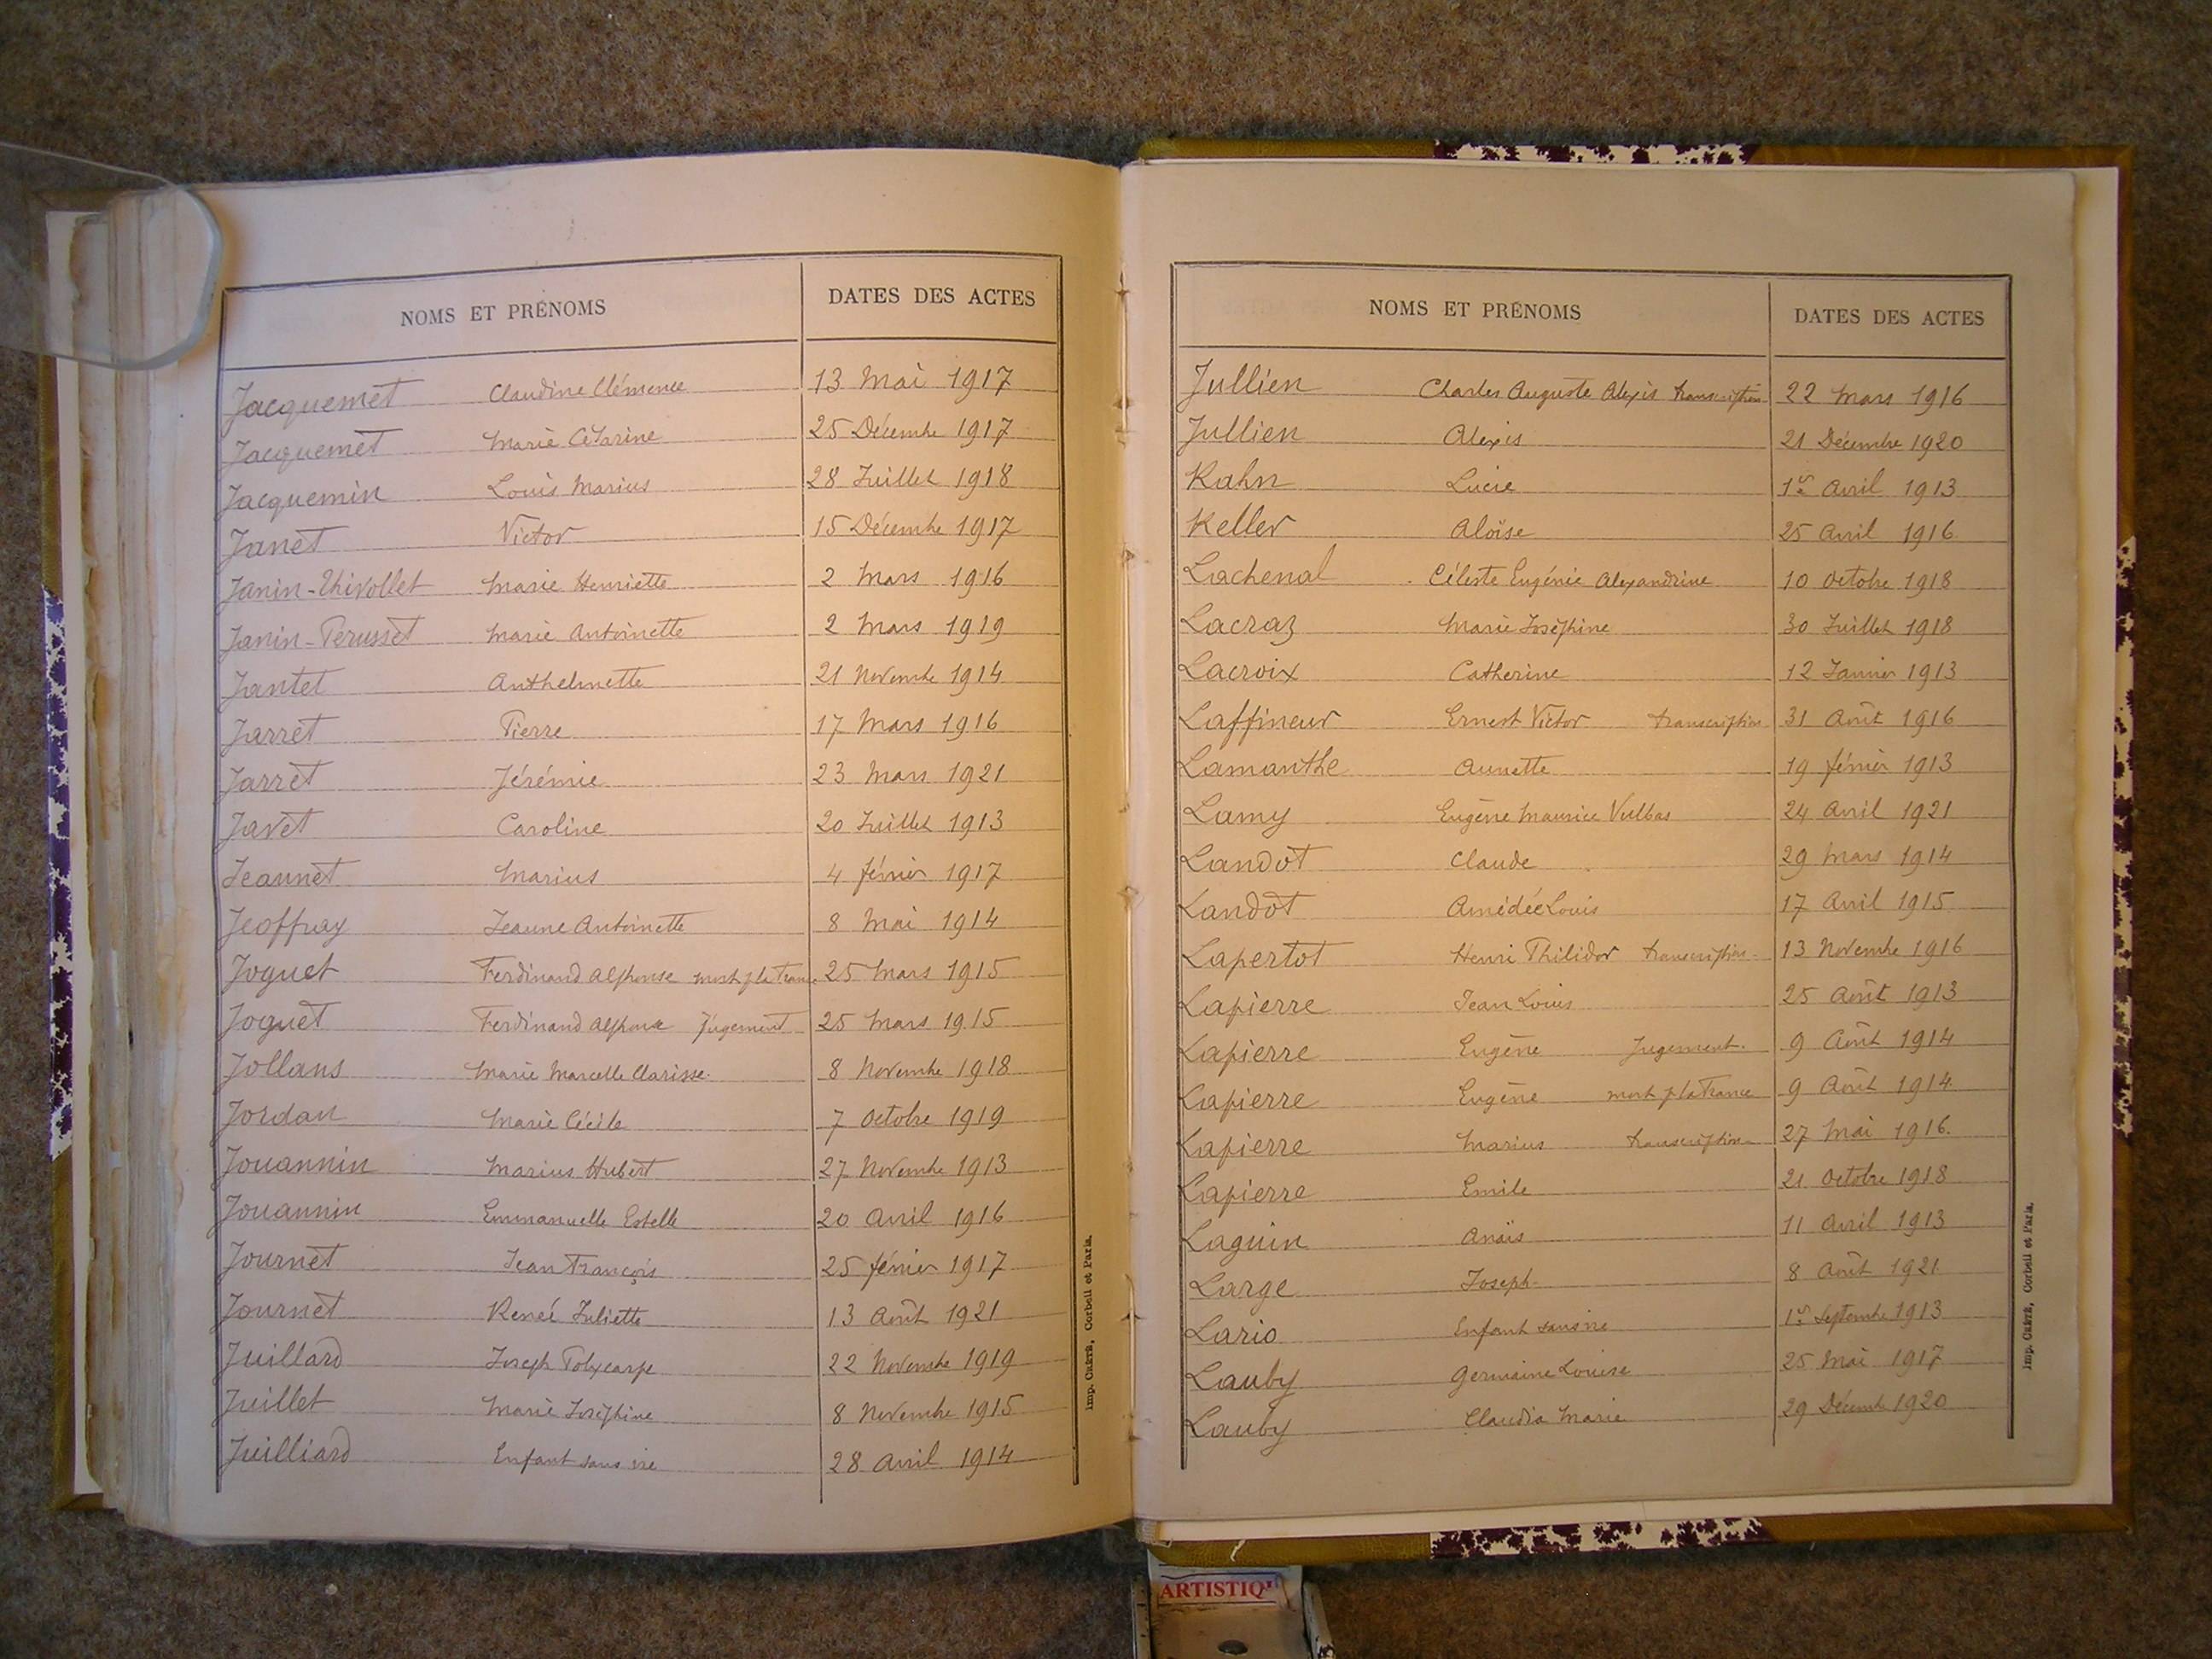 NOMS ET PRÉNOMS DATES DES ACTES
Jacquemet Claudine Clémence 13 Mai 1917
Jacquemet Marie Césarine 25 Décembre 1917
Jacquemin Louis Marius 28 Juillet 1918
Janet Victor 15 Décembre 1917
Janin-Thivollet Marie Henriette 2 Mars 1916
Janin-Perusset Marie Antoinette 2 Mars 1919
Jantet Anthelmette 21 Novembre 1914
Jarret Pierre 17 Mars 1916
Jarret Jérémie 23 Mars 1921
Javet Caroline 20 Juillet 1913
Jeannet Marius 4 février 1917
Jeoffray Jeanne Antoinette 8 Mai 1914
Joguet Ferdinand Alphonse mort p la France 25 Mars 1915
Joguet Ferdinand Alphonse Jugement 25 Mars 1915
Jollans Marie Marcelle Clarisse 8 Novembre 1918
Jordan Marie Cécile 7 Octobre 1919
Jouannin Marius Hubert 27 Novembre 1913
Jouannin Emmanuelle Estelle 20 Avril 1916
Journet Jean François 25 février 1917
Journet Reneé Juliette 13 Août 1921
Juillard Joseph Polycarpe 22 Novembre 1919
Juillet Marie Joséphine 8 Novembre 1915
Juilliard Enfant sans vie 28 Avril 1914
Imp. CRÉTÉ, Corbeil et Paris.
NOMS ET PRÉNOMS DATES DES ACTES
Jullien Charles Auguste Alexis transcription 22 Mars 1916
Jullien Alexis 21 Décembre 1920
Kahn Lucie 1er Avril 1913
Keller Aloïse 25 Avril 1916
Lachenal Céleste Eugénie Alexandrine 10 Octobre 1918
Lacraz Marie Joséphine 30 Juillet 1918
Lacroix Catherine 12 Janvier 1913
Laffineur Ernest Victor transcription 31 Août 1916
Lamanthe Annette 19 février 1913
Lamy Eugène Maurice Vulbas 24 Avril 1921
Landot Claude 29 Mars 1914
Landot Amédée Louis 17 Avril 1915
Lapertot Henri Philidor transcription 13 Novembre 1916
Lapierre Jean Louis 25 Août 1913
Lapierre Eugène Jugement. 9 Août 1914
Lapierre Eugène mort p la France 9 Août 1914
Lapierre Marius transcription 27 Mai 1916.
Lapierre Emile 21 Octobre 1918
Laguin Anaïs 11 Avril 1913
Large Joseph 8 Août 1921
Lario Enfant sans vie 1er Septembre 1913
Lauby Germaine Louise 25 Mai 1917
Lauby Claudia Marie 29 Décemb 1920
Imp. CRÉTÉ, Corbeil et Paris.
ARTISTIQ